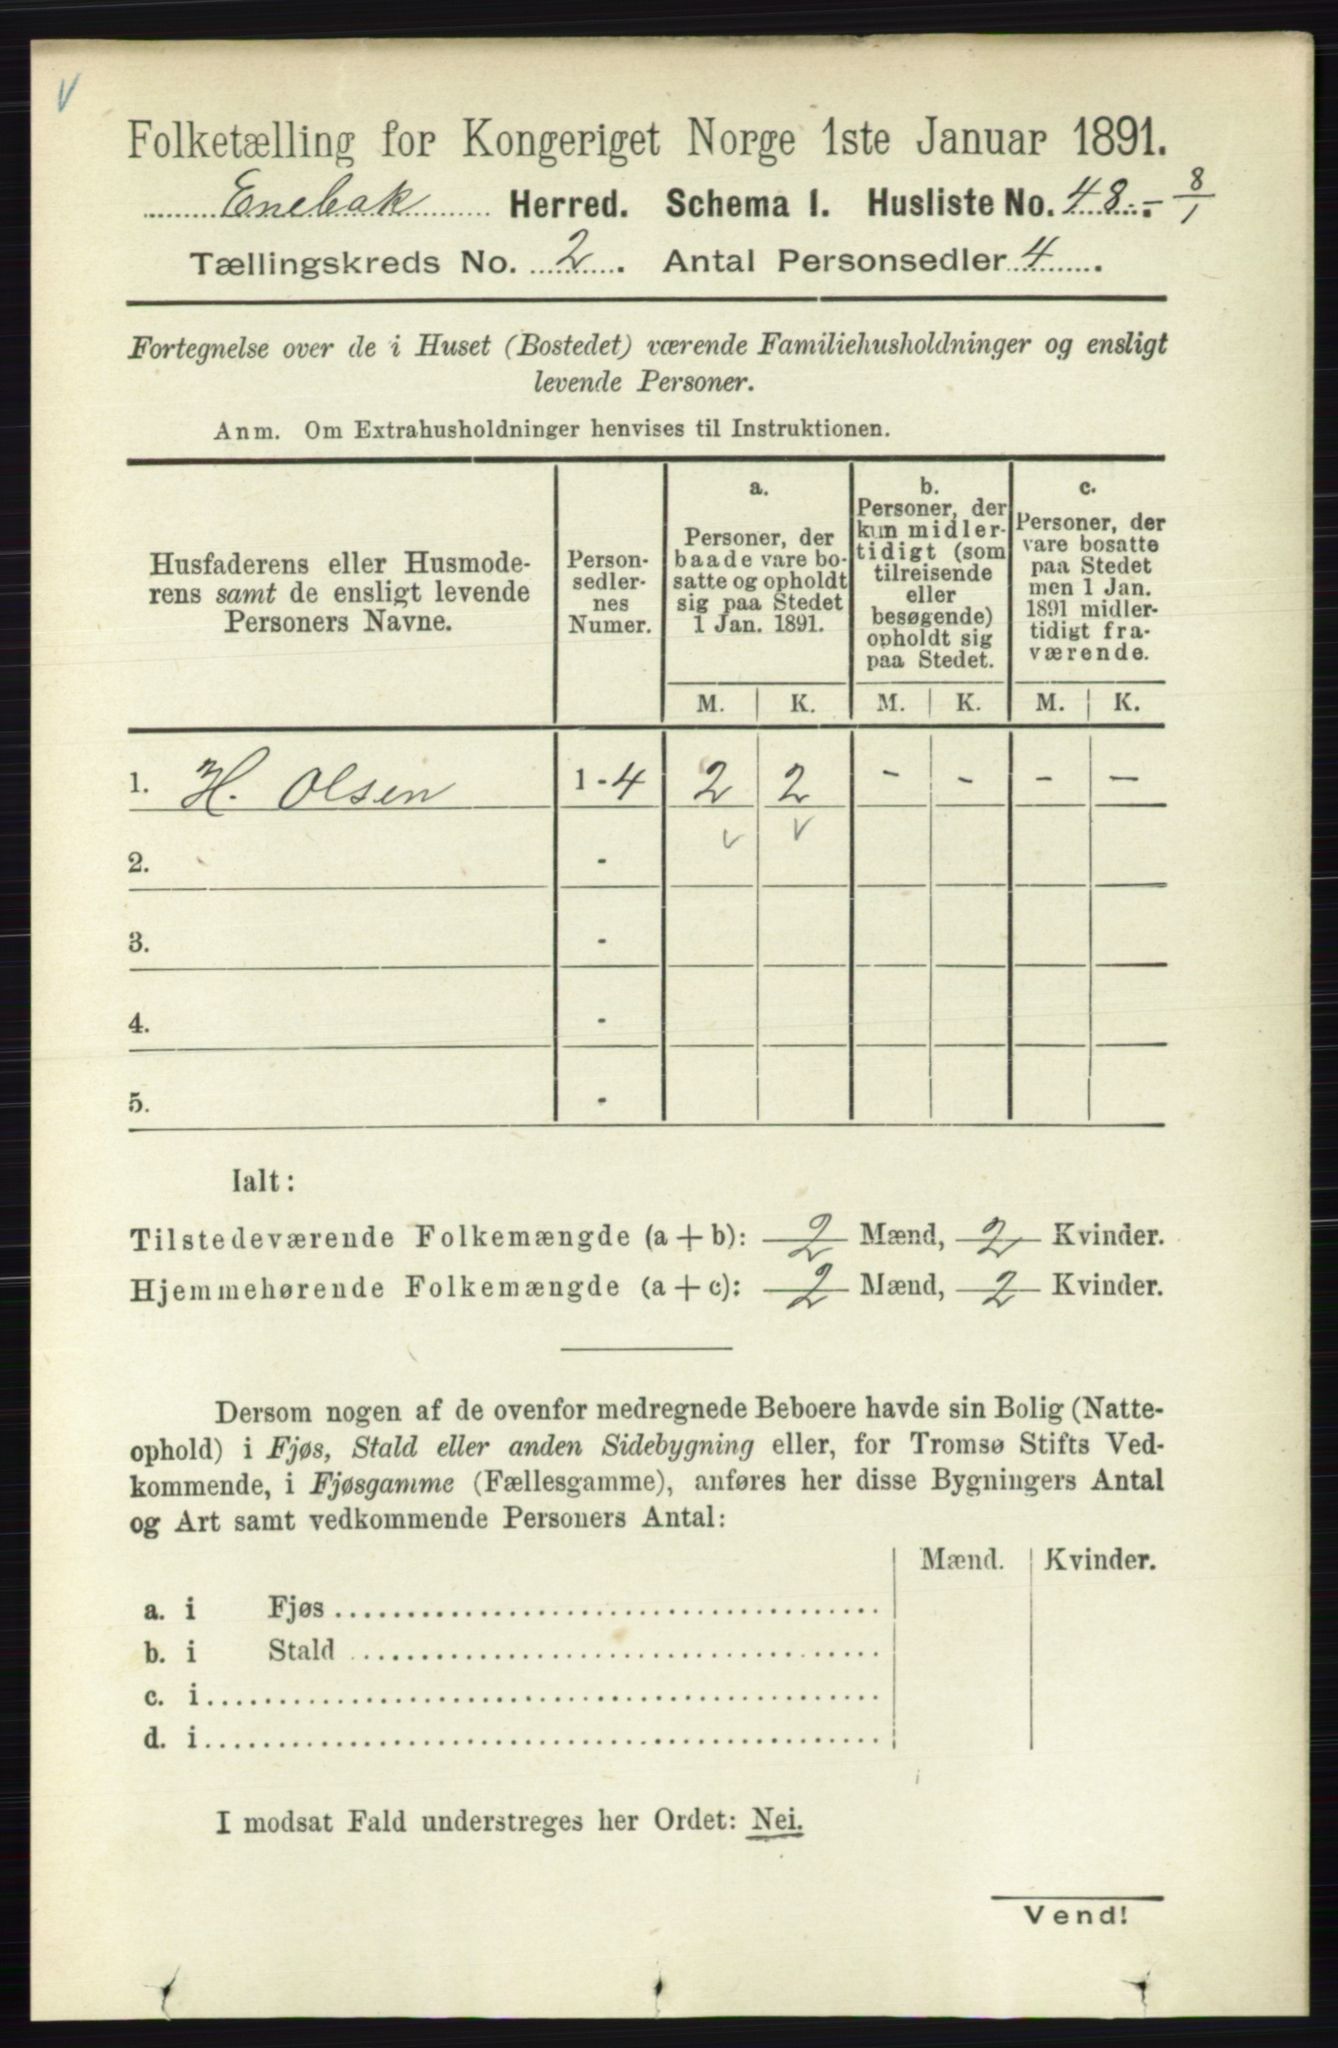 V
Folketælling for Kongeriget Norge 1ste Januar 1891.
Enebak Herred. Schema I. Husliste No. 48.- 8/1
Tællingskreds No. 2. Antal Personsedler 4.
Fortegnelse over de i Huset (Bostedet) værende Familiehusholdninger og ensligt
levende Personer.
Anm. Om Extrahusholdninger henvises til Instruktionen.
Husfaderens eller Husmode-
rens samt de ensligt levende
Personers Navne.
Person-
sedler-
nes
Numer.
a.
Personer, der
baade vare bo-
satte og opholdt
sig paa Stedet
1 Jan. 1891.
b.
Personer, der
kun midler-
tidigt (som
tilreisende
eller
besøgende)
opholdt sig
paa Stedet.
c.
Personer, der
vare bosatte
paa Stedet
men 1 Jan.
1891 midler-
tidigt fra-
værende.
M. K. M. K. M. K.
1. H. Olsen 1-4 2 2 - - - -
v v
2. -
3. -
4. -
5. -
Ialt:
Tilstedeværende Folkemængde (a + b): 2 Mænd, 2 Kvinder.
Hjemmehørende Folkemængde (a + c): 2 Mænd, 2 Kvinder.
Dersom nogen af de ovenfor medregnede Beboere havde sin Bolig (Natte-
ophold) i Fjøs, Stald eller anden Sidebygning eller, for Tromsø Stifts Ved-
kommende, i Fjøsgamme (Fællesgamme), anføres her disse Bygningers Antal
og Art samt vedkommende Personers Antal:
Mænd. Kvinder.
a. i Fjøs
b. i Stald
c. i
d. i
I modsat Fald understreges her Ordet: Nei.
Vend!